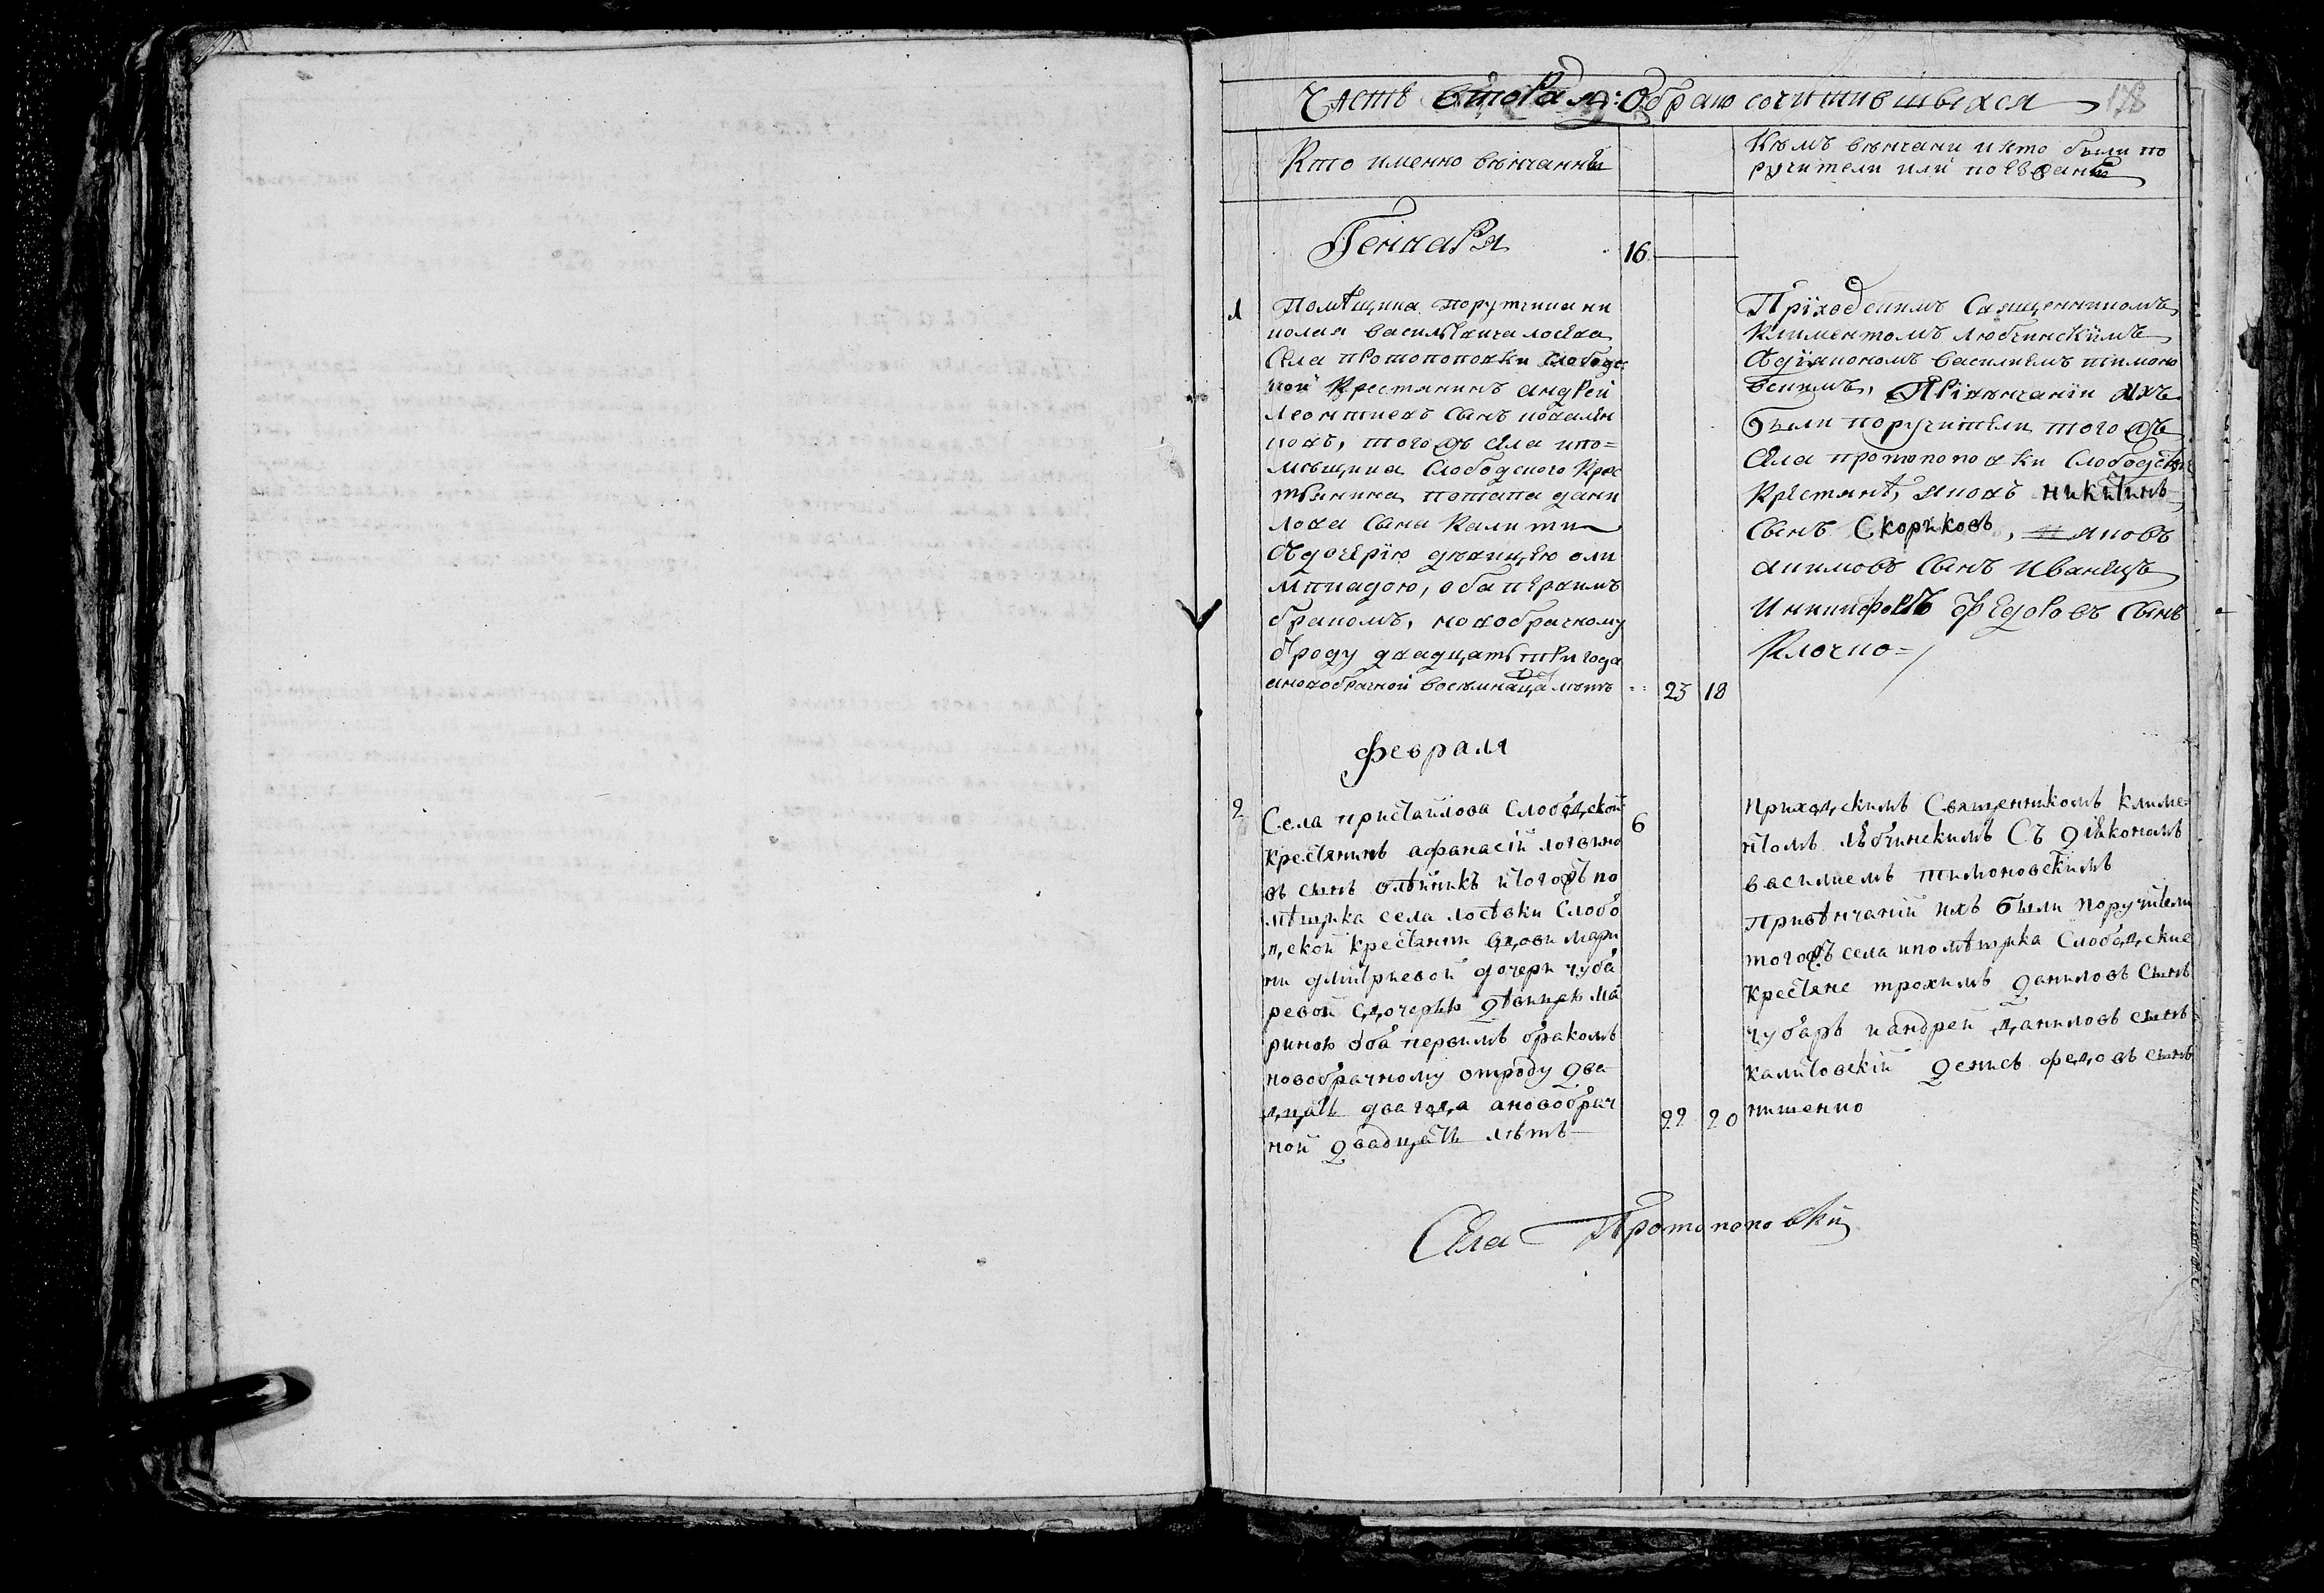 Часть вторая: Обрако сочитившихся 178
Кто именно венчанны
Кемъ венчани и кто были по
ручители или поезжанѣ
Генваря
16
1
Помѣщика порутчика ни
колая васильевича лосева
Села протопоповки слобоцс
кой Крестянинъ андрей
леонтиевъ сынъ
новъ, тогожъ села ипо=
мѣщика Слободского Крес
тьянина потапа дани
лова сына Калити
Здочерїю девицею оли
мпиадою, оба первимъ
бракомъ, новобрачному
отроду двадцать три года
ановобрачной восемнацать летъ
23 18
Приходскимъ Священникомъ
Климентомъ любчинскимъ
Здїякономъ василиемъ тимоно
вскимъ, Привенчанїи ихъ
были поручители тогожъ
Села протопоповки Слободские
Крестянѣ, яковъ никитинъ
сынъ Скориковъ, яковъ
акимовъ сынъ иванецъ
Иникифоръ Федоровъ сынъ
Клочко=
февраля
2
Села пристайлова слободской
6
крестянинъ афанасій логвино
въ сынъ олѣйникъ итогожъ по
мѣщика села лосѣвки слобо
дской крестянки вдови мари
ни дмитриевой дочери чуба
ревой сдочерью дѣвицею ма
риною оба первимъ бракомъ
новобрачному отроду два
дцать два года ановобрач
ной двадцать лѣтъ
22 20
приходскимъ Священникомъ климе
нтомъ любчинскимъ Съ діяконамъ
василиемъ тимоновскимъ
Привѣнчаній ихъ были поручители
тогожъ села ипомѣщика Слободские
крестяне трохимъ даниловъ сынъ
чубаръ иандрей даниловъ сынъ
калитовскій денисъ федовъ сынъ
Села Протопоповки